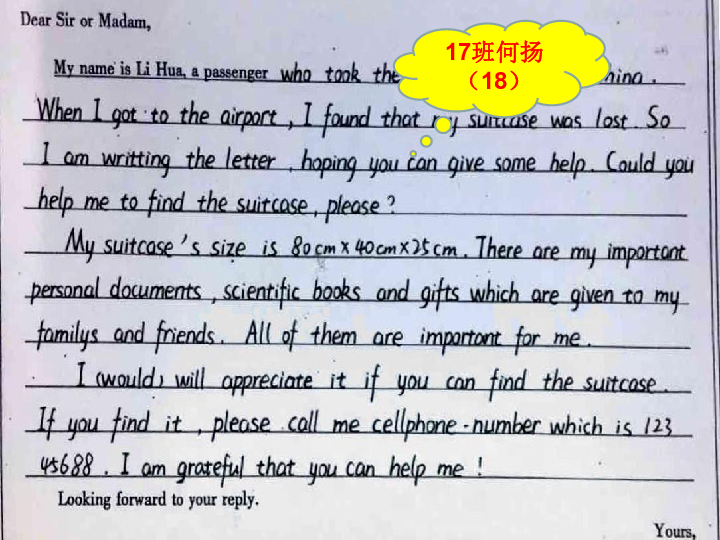 Dear Sir or Madam,
17班何扬
（18）
My name is Li Hua, a passenger who took the china.
When I got to the airport, I found that my suitcase was lost. So
I am writting the letter, hoping you can give some help. Could you
help me to find the suitcase, please?
My suitcase's size is 80cm×40cm×25cm. There are my important
personal documents, scientific books and gifts which are given to my
familys and friends. All of them are important for me.
I (would) will appreciate it if you can find the suitcase.
If you find it, please call me cellphone-number which is 123
45688. I am grateful that you can help me!
Looking forward to your reply.
Yours,